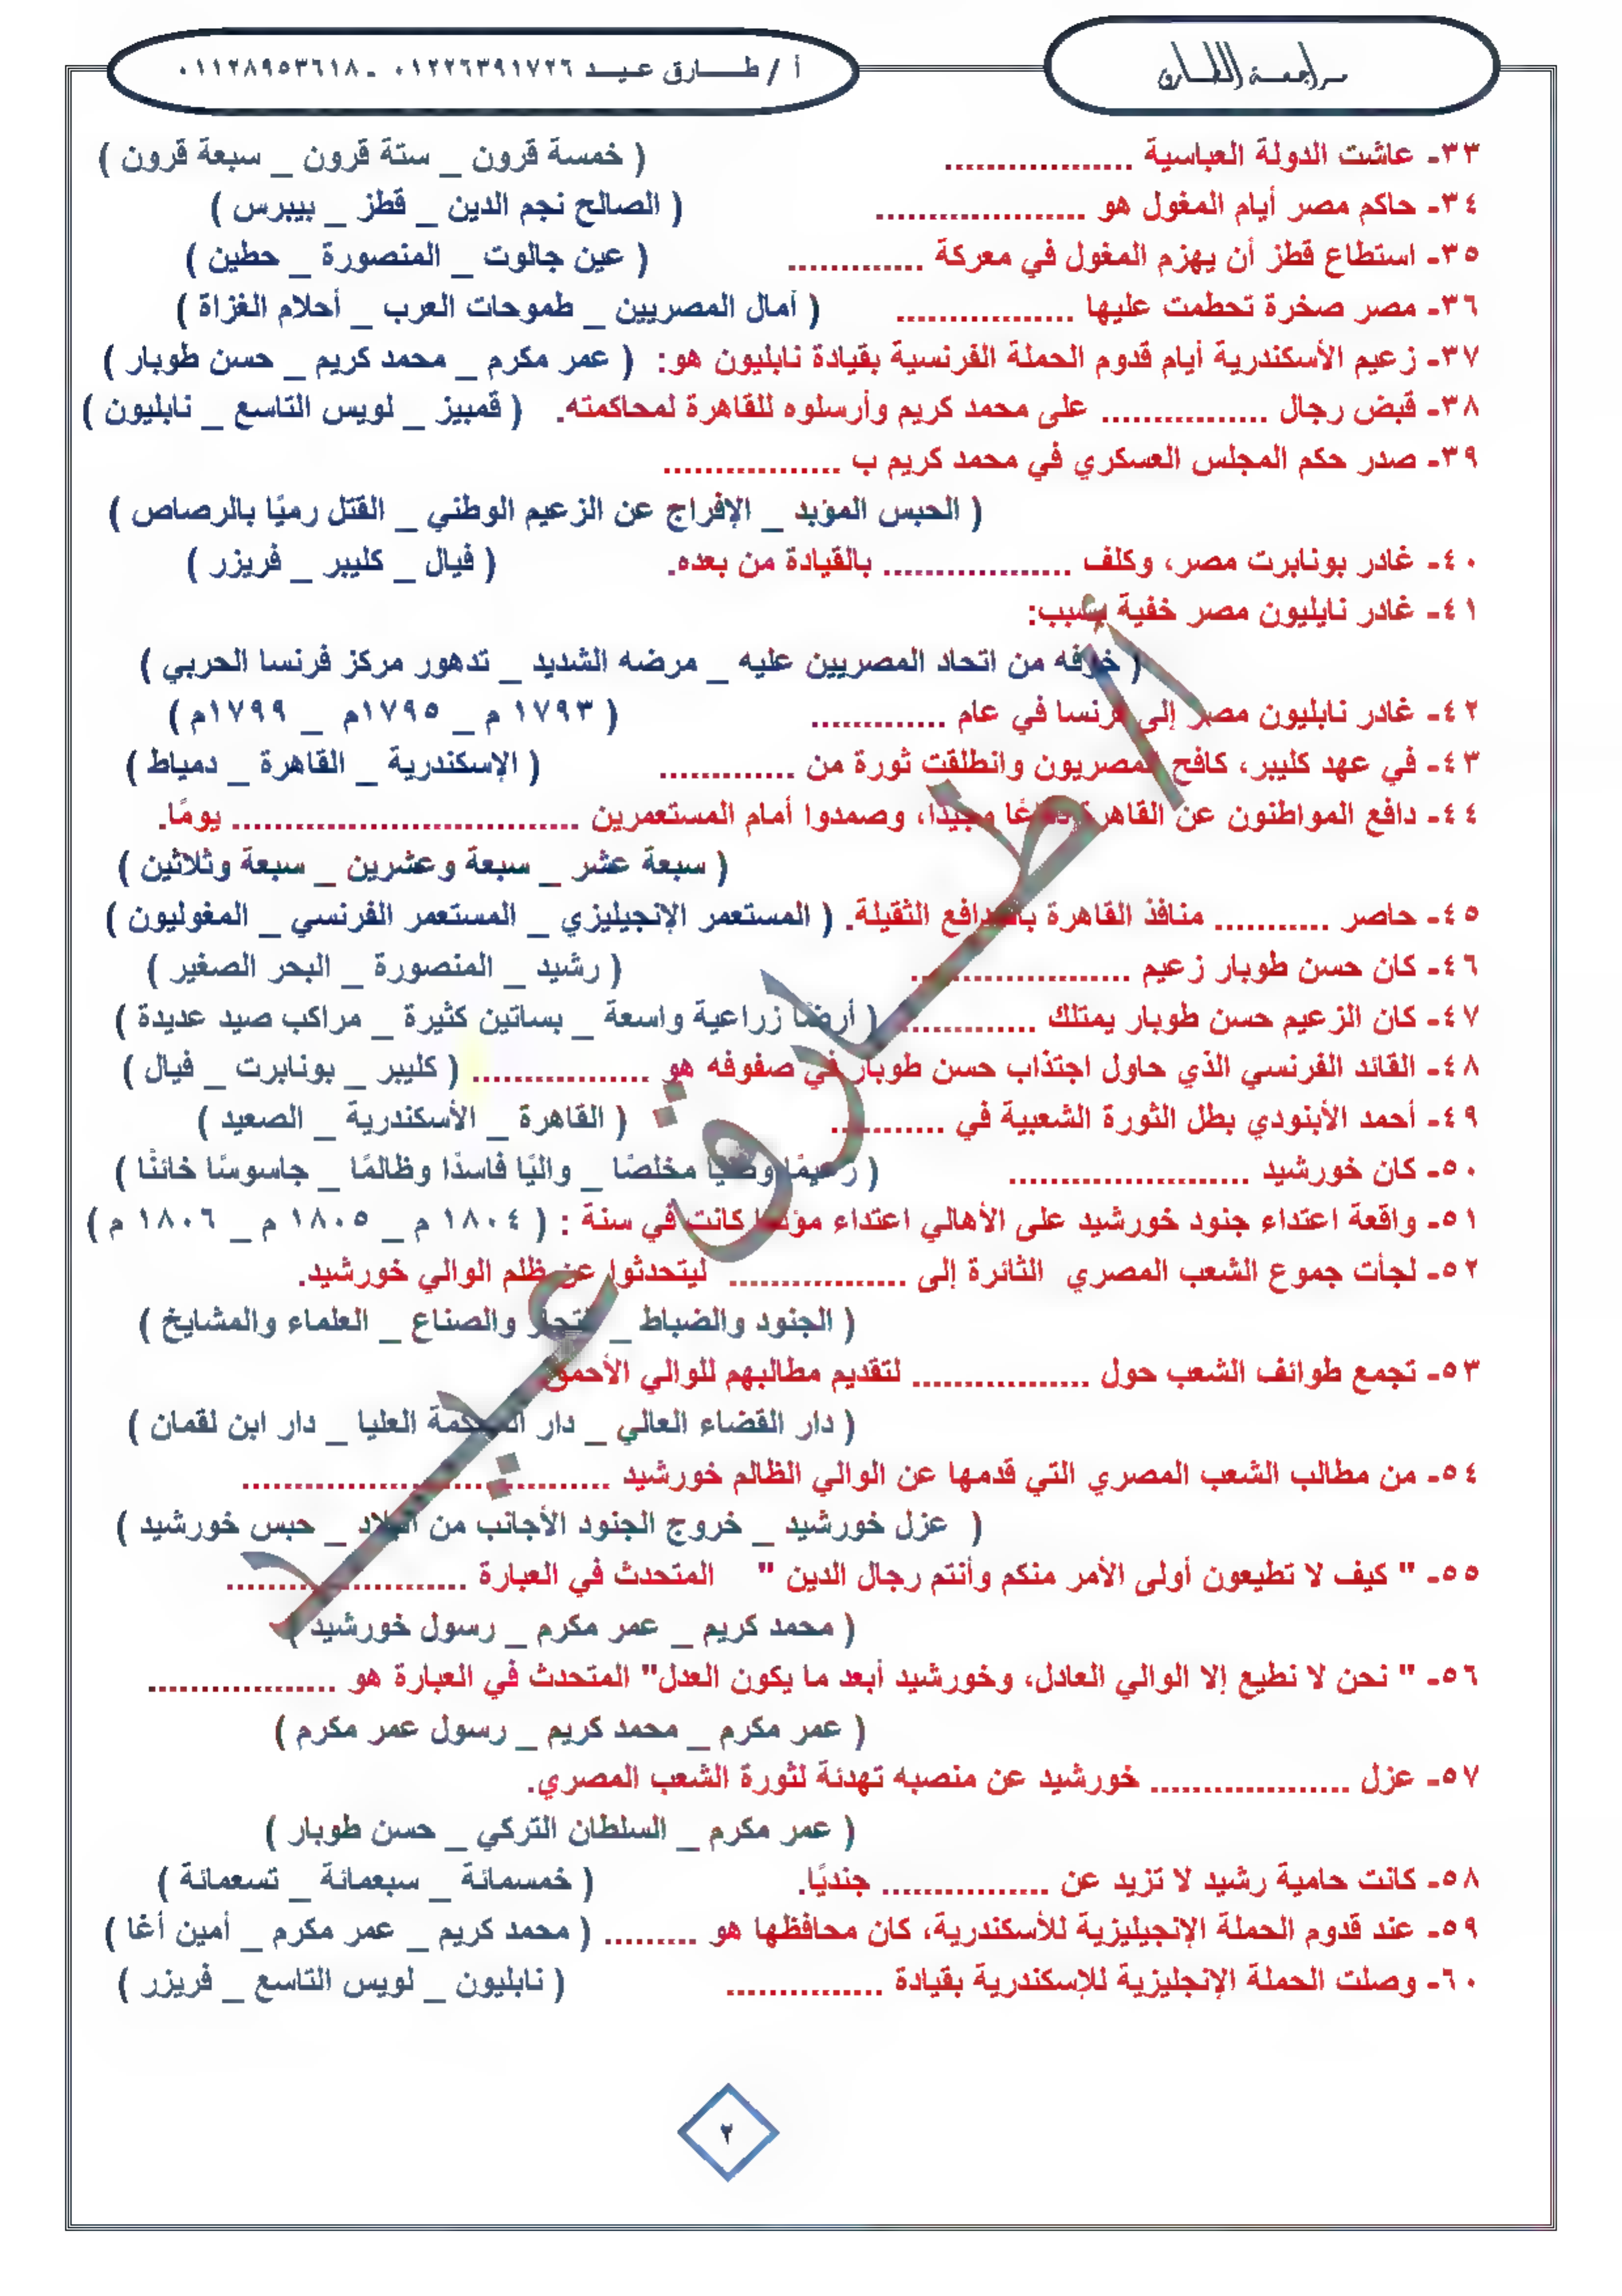 مراجعة الطارق
أ / طــــارق عـيــد ٠١٢٢٦٣٩١٧٢٦ ـ ٠١١٢٨٩٥٣٦١٨
٣٣ـ عاشت الدولة العباسية .................. ( خمسة قرون _ ستة قرون _ سبعة قرون )
٣٤ـ حاكم مصر أيام المغول هو .................... ( الصالح نجم الدين _ قطز _ بيبرس )
٣٥ـ استطاع قطز أن يهزم المغول في معركة ............. ( عين جالوت _ المنصورة _ حطين )
٣٦ـ مصر صخرة تحطمت عليها ................. ( أمال المصريين _ طموحات العرب _ أحلام الغزاة )
٣٧ـ زعيم الأسكندرية أيام قدوم الحملة الفرنسية بقيادة نابليون هو: ( عمر مكرم _ محمد كريم _ حسن طوبار )
٣٨ـ قبض رجال ................ على محمد كريم وأرسلوه للقاهرة لمحاكمته. ( قمبيز _ لويس التاسع _ نابليون )
٣٩ـ صدر حكم المجلس العسكري في محمد كريم ب .................
( الحبس المؤبد _ الإفراج عن الزعيم الوطني _ القتل رميًا بالرصاص )
٤٠ـ غادر بونابرت مصر، وكلف .................. بالقيادة من بعده. ( فيال _ كليبر _ فريزر )
٤١ـ غادر نابليون مصر خفية بسبب:
( خوفه من اتحاد المصريين عليه _ مرضه الشديد _ تدهور مركز فرنسا الحربي )
٤٢ـ غادر نابليون مصر إلى فرنسا في عام ............. ( ١٧٩٣ م _ ١٧٩٥م _ ١٧٩٩م )
٤٣ـ في عهد كليبر، كافح المصريون وانطلقت ثورة من ............. ( الإسكندرية _ القاهرة _ دمياط )
٤٤ـ دافع المواطنون عن القاهرة دفاعًا مجيدًا، وصمدوا أمام المستعمرين ................................. يومًا.
( سبعة عشر _ سبعة وعشرين _ سبعة وثلاثين )
٤٥ـ حاصر ........... منافذ القاهرة بالمدافع الثقيلة. ( المستعمر الإنجيليزي _ المستعمر الفرنسي _ المغوليون )
٤٦ـ كان حسن طوبار زعيم ..................... ( رشيد _ المنصورة _ البحر الصغير )
٤٧ـ كان الزعيم حسن طوبار يمتلك ............. ( أرضًا زراعية واسعة _ بساتين كثيرة _ مراكب صيد عديدة )
٤٨ـ القائد الفرنسي الذي حاول اجتذاب حسن طوبار في صفوفه هو ................. ( كليبر _ بونابرت _ فيال )
٤٩ـ أحمد الأبنودي بطل الثورة الشعبية في ........... ( القاهرة _ الأسكندرية _ الصعيد )
٥٠ـ كان خورشيد ....................... ( زعيمًا وطنيًا مخلصًا _ واليًا فاسدًا وظالمًا _ جاسوسًا خائنًا )
٥١ـ واقعة اعتداء جنود خورشيد على الأهالي اعتداء مؤسفا كانت في سنة : ( ١٨٠٤ م _ ١٨٠٥ م _ ١٨٠٦ م )
٥٢ـ لجأت جموع الشعب المصري الثائرة إلى ................. ليتحدثوا عن ظلم الوالي خورشيد.
( الجنود والضباط _ التجار والصناع _ العلماء والمشايخ )
٥٣ـ تجمع طوائف الشعب حول ................. لتقديم مطالبهم للوالي الأحمق
( دار القضاء العالي _ دار المحكمة العليا _ دار ابن لقمان )
٥٤ـ من مطالب الشعب المصري التي قدمها عن الوالي الظالم خورشيد ...................................
( عزل خورشيد _ خروج الجنود الأجانب من البلاد _ حبس خورشيد )
٥٥ـ " كيف لا تطيعون أولى الأمر منكم وأنتم رجال الدين " المتحدث في العبارة .......................
( محمد كريم _ عمر مكرم _ رسول خورشيد )
٥٦ـ " نحن لا نطيع إلا الوالي العادل، وخورشيد أبعد ما يكون العدل" المتحدث في العبارة هو ..................
( عمر مكرم _ محمد كريم _ رسول عمر مكرم )
٥٧ـ عزل ................... خورشيد عن منصبه تهدئة لثورة الشعب المصري.
( عمر مكرم _ السلطان التركي _ حسن طوبار )
٥٨ـ كانت حامية رشيد لا تزيد عن ................ جنديًا. ( خمسمائة _ سبعمائة _ تسعمائة )
٥٩ـ عند قدوم الحملة الإنجيليزية للأسكندرية، كان محافظها هو ......... ( محمد كريم _ عمر مكرم _ أمين أغا )
٦٠ـ وصلت الحملة الإنجليزية للإسكندرية بقيادة ............... ( نابليون _ لويس التاسع _ فريزر )
أ/ طـــارق عيـــد
٢